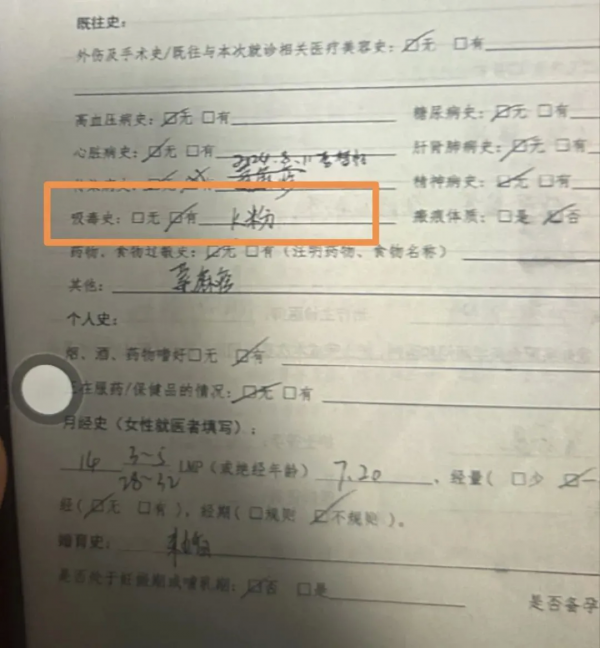 既往史:
外伤及手术史/既往与本次就诊相关医疗美容史: ☑无 □有
高血压病史: ☑无 □有 糖尿病史: ☑无
心脏病史: ☑无 □有 肝肾肺病史: ☑无
2024.8.11
荨麻疹
精神病史: ☑无 □有
吸毒史: □无 ☑有 K粉 瘢痕体质: □是 ☑否
药物、食物过敏史: ☑无 □有(注明药物、食物名称)
其他: 荨麻疹
个人史:
烟、酒、药物嗜好□无 ☑有
在服药/保健品的情况: ☑无 □有
月经史(女性就医者填写):
14 3~5 LMP(或绝经年龄) 7.20 、经量( □少 ☑一
28~32
经( ☑无 □有 ), 经期( □规则 ☑不规则 )。
婚育史: 未婚
是否处于妊娠期或哺乳期: ☑否 □是 是否备孕